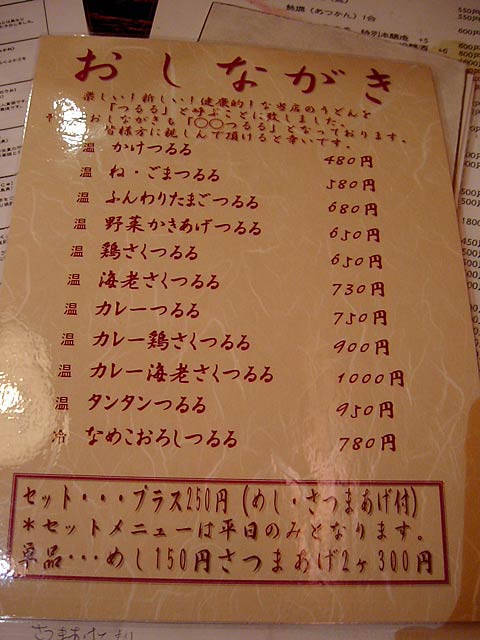 おしながき
楽しい！新しい！健康的！な当店のうどんを
「つるる」と呼ぶことに致しました。
おしながきも「〇〇つるる」となっております。
皆様方に親しんで頂けると幸いです。
温 かけつるる 480円
温 ね・ごまつるる 580円
温 ふんわりたまごつるる 680円
温 野菜かきあげつるる 650円
温 鶏さくつるる 650円
温 海老さくつるる 730円
温 カレーつるる 750円
温 カレー鶏さくつるる 900円
温 カレー海老さくつるる 1000円
温 タンタンつるる 950円
冷 なめこおろしつるる 780円
セット・・・プラス250円（めし・さつまあげ付）
＊セットメニューは平日のみとなります。
単品・・・めし150円さつまあげ2ヶ300円
熱燗（あつかん）1合
特別本醸造 +5